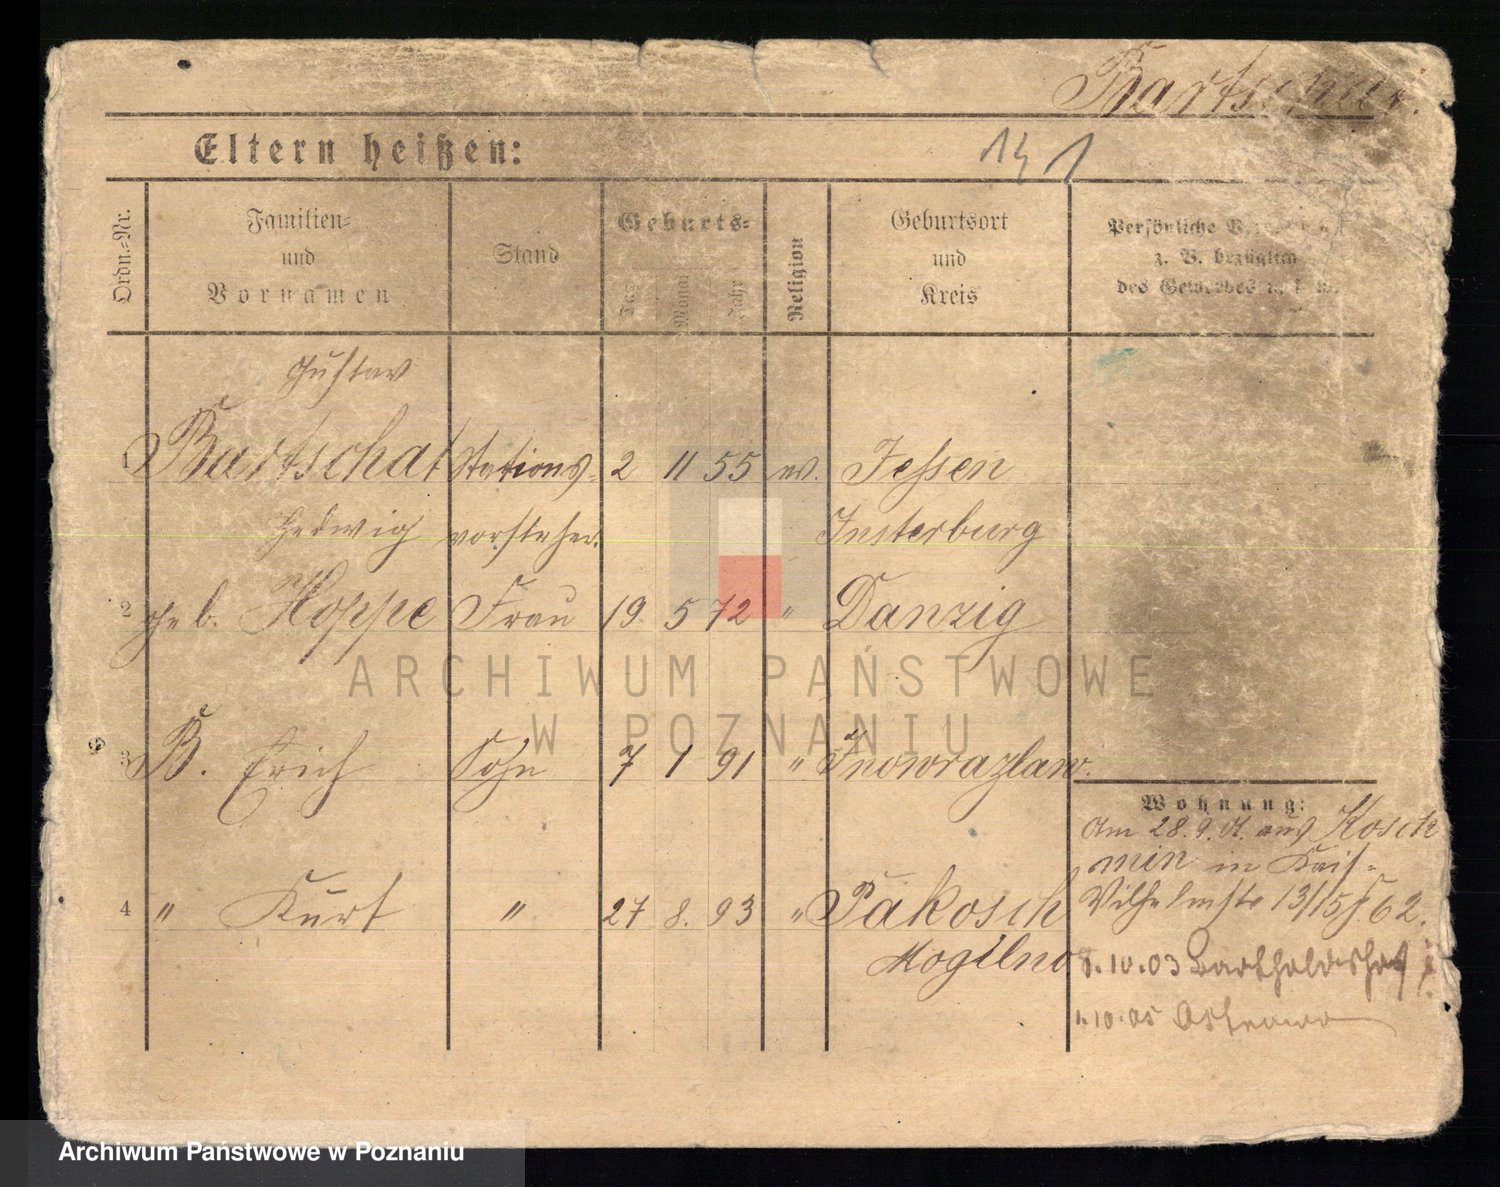 Bartschat.
Eltern heißen:
141
Ordn.-Nr.
Familien-
und
Vornamen
Stand
Geburts-
Tag
Monat
Jahr
Religion
Geburtsort
und
Kreis
Persönliche
z. B. bezüglich
des Gewerbes u. s. w.
Gustav
1 Bartschat Stations- 2 11 55 ev. Jessen
Hedwig vorsteher. Insterburg
2 geb. Hoppe Frau 19. 5 72 " Danzig
3 B. Erich Sohn 7 1 91 " Inowrazlaw.
Wohnung:
Am 28.9.01. aus Kosch
min in Kais-
4 " Kurt " 27 8. 93 " Pakosch Wilhelmstr 13/15 f. 62.
Mogilno 8.10.03 Bartholdshof
1.10.05 Ostrowo
ARCHIWUM PAŃSTWOWE
W POZNANIU
Archiwum Państwowe w Poznaniu